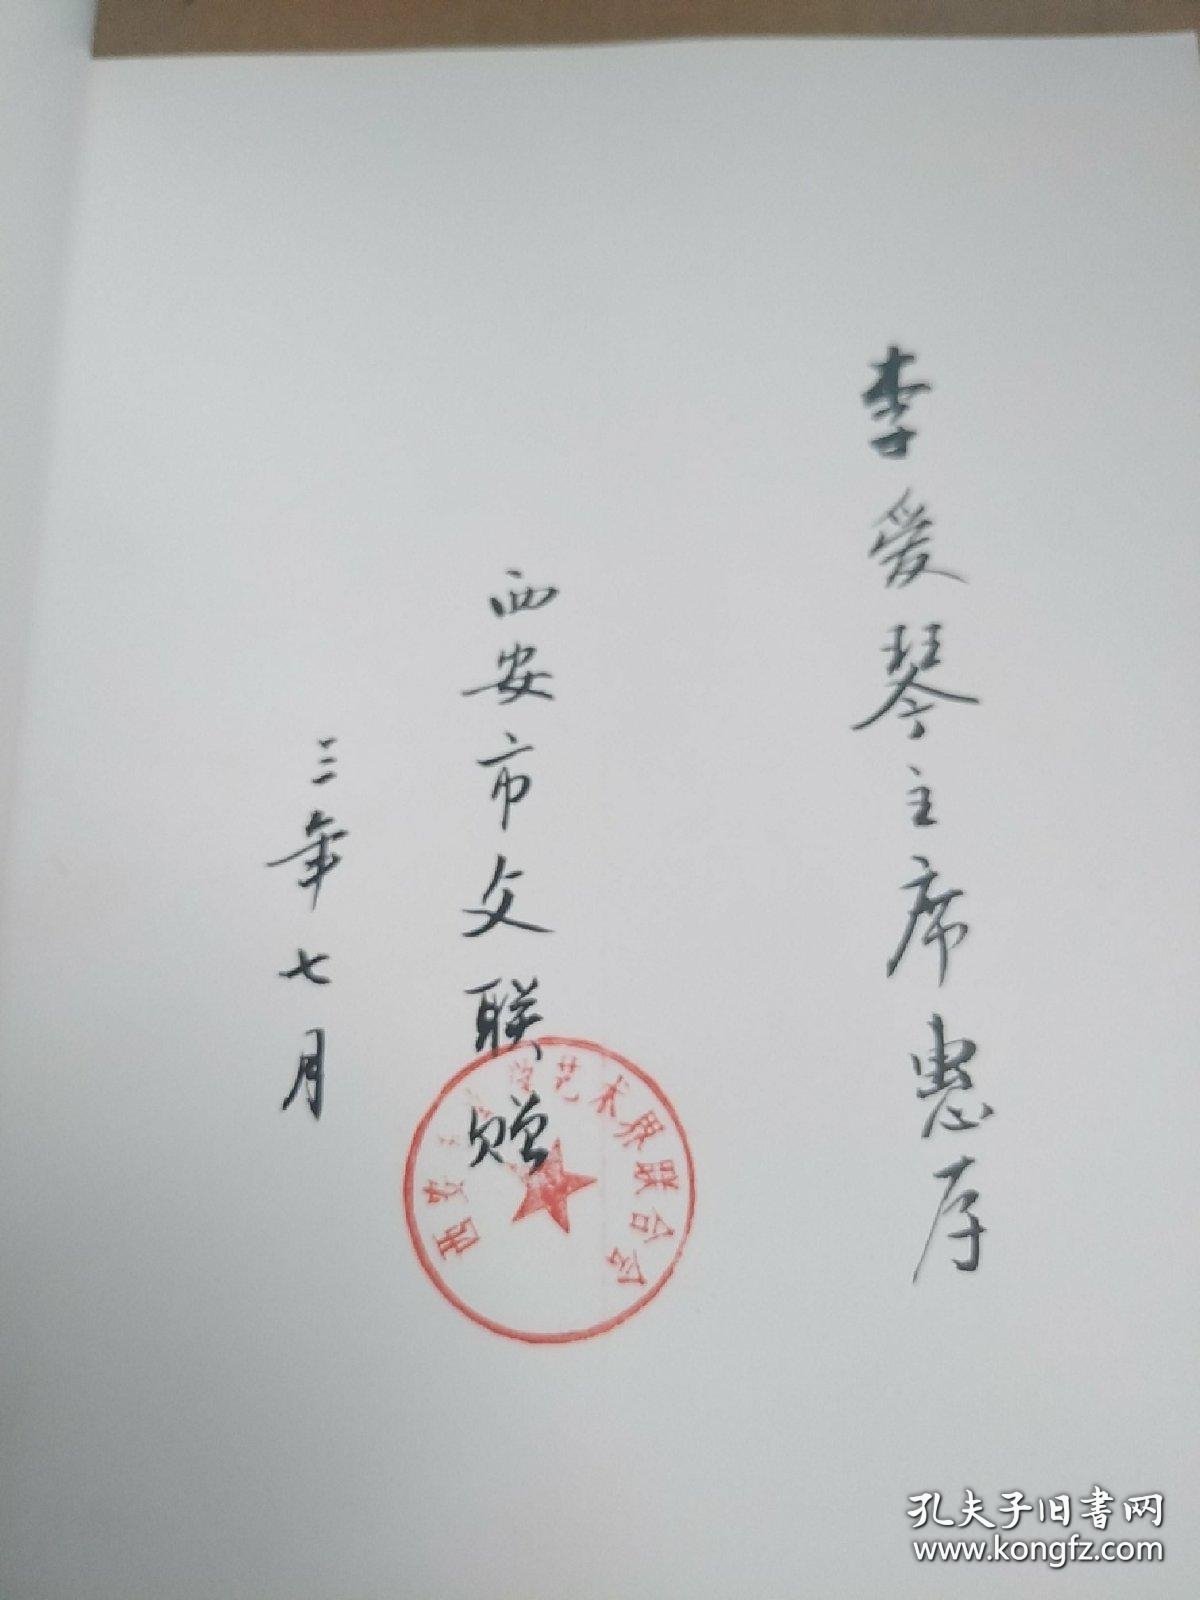 李爱琴主席惠存
西安市文联赠
三年七月
西安市文学艺术界联合会
孔夫子旧书网
www.kongfz.com